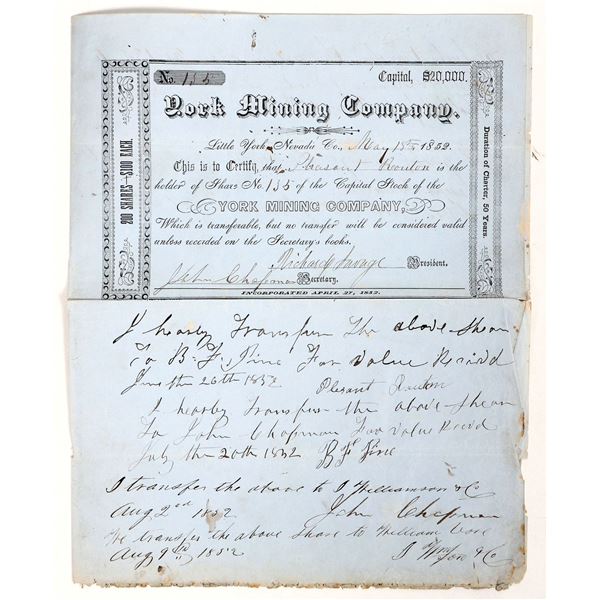 No. 135
Capital, $20,000.
York Mining Company.
Little York, Nevada Co., May 18th 1852.
This is to Certify, that Pleasant Routon is the
holder of Share No. 135 of the Capital Stock of the
YORK MINING COMPANY,
Which is transferable, but no transfer will be considered valid
unless recorded on the Secretary's books.
Richard Savage President.
John Chapman Secretary.
INCORPORATED APRIL 27, 1852.
200 SHARES—$100 EACH.
Duration of Charter, 50 Years.
I hearby Transfer The above Shear
To B. F. Pine For Value Recivd
June the 26th 1852 Plesant Routon
I hearby Transfer the above Shear
To John Chapman For Value Recivd
July the 20th 1852 B F Pine
I transfer the above to J Williamson & Co
Aug 2nd 1852 John Chapman
We transfer the above Share to William
Aug 9th 1852 & Co